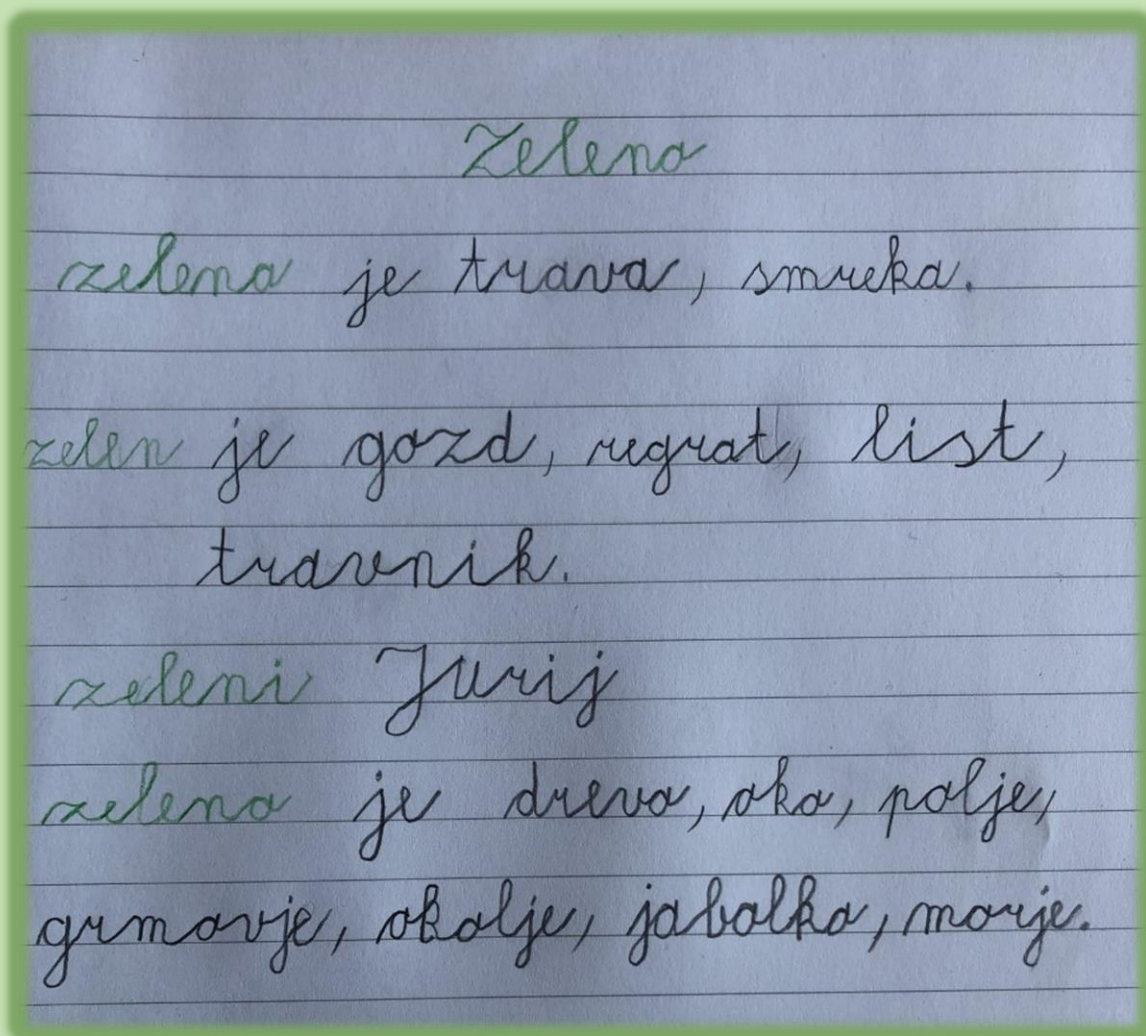 Zeleno
zelena je trava, smreka.
zelen je gozd, regrat, list,
travnik.
zeleni Jurij
zeleno je drevo, oko, polje,
grmovje, okolje, jabolko, morje.